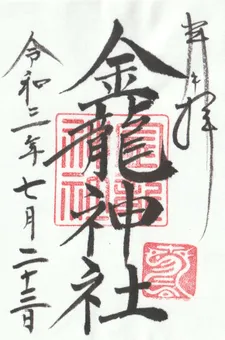 奉拝
金龍神社
令和三年七月二十三日